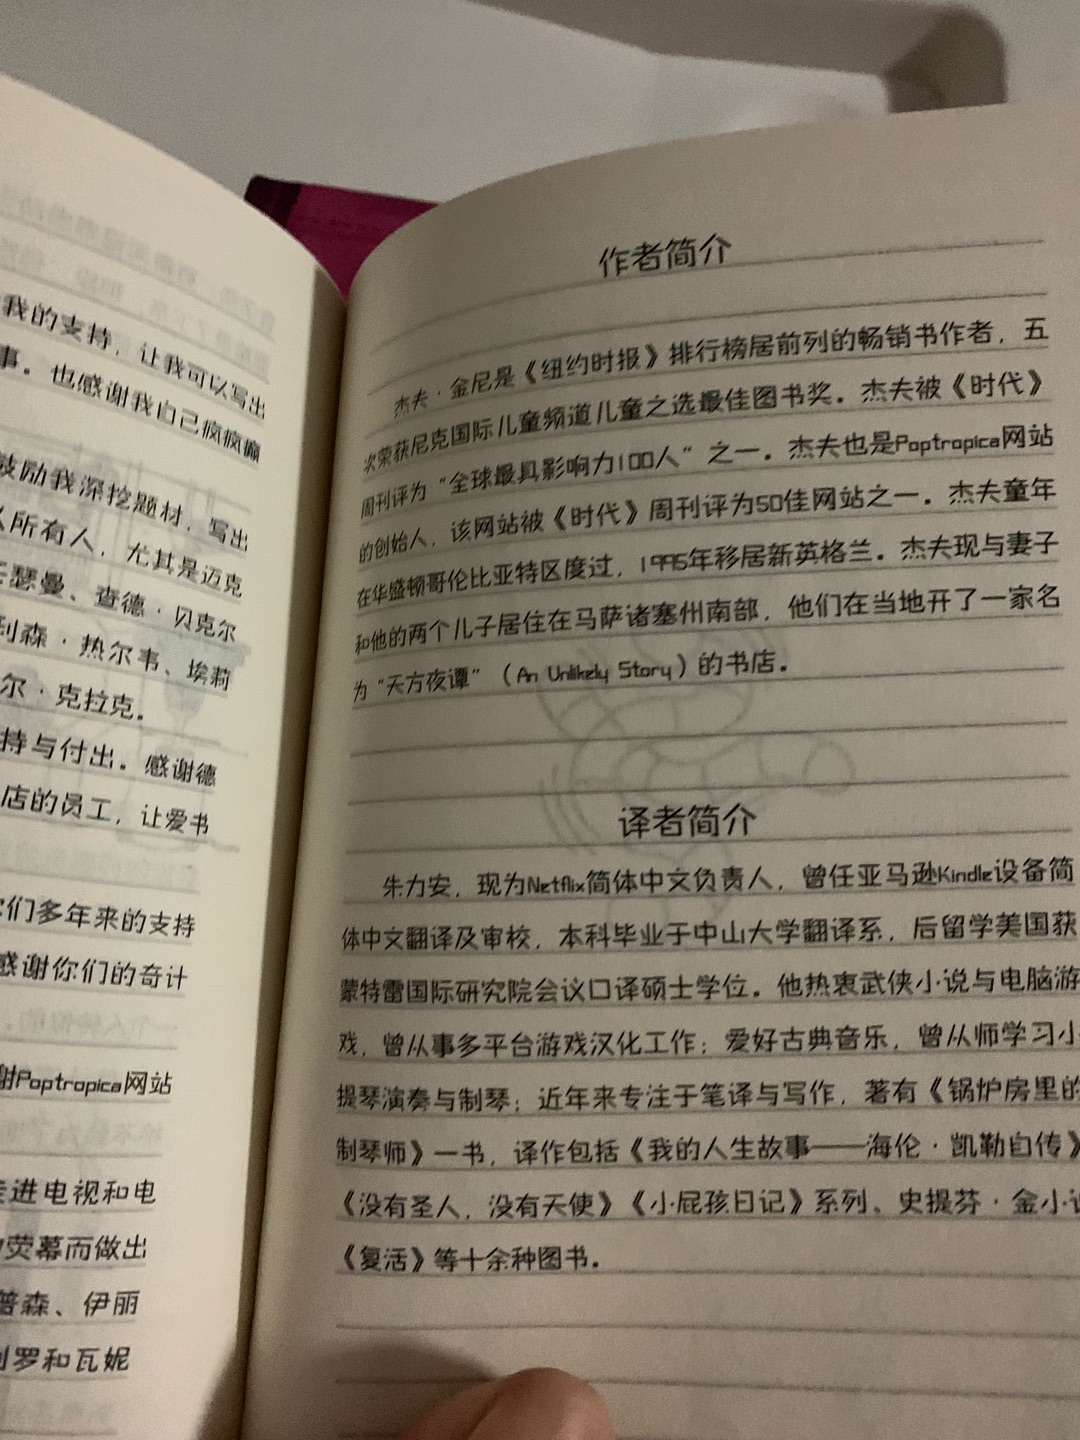 我的支持，让我可以写出
事。也感谢我自己疯疯癫
鼓励我深挖题材，写出
所有人，尤其是迈克
瑟曼、查德·贝克尔
利森·热尔韦、埃莉
尔·克拉克。
持与付出。感谢德
店的员工，让爱书
你们多年来的支持
感谢你们的奇计
谢Poptropica网站
走进电视和电
荧幕而做出
普森、伊丽
罗和瓦妮
作者简介
杰夫·金尼是《纽约时报》排行榜居前列的畅销书作者，五
次荣获尼克国际儿童频道儿童之选最佳图书奖。杰夫被《时代》
周刊评为“全球最具影响力100人”之一。杰夫也是Poptropica网站
的创始人，该网站被《时代》周刊评为50佳网站之一。杰夫童年
在华盛顿哥伦比亚特区度过，1995年移居新英格兰。杰夫现与妻子
和他的两个儿子居住在马萨诸塞州南部，他们在当地开了一家名
为“天方夜谭”（An Unlikely Story）的书店。
译者简介
朱力安，现为Netflix简体中文负责人，曾任亚马逊Kindle设备简
体中文翻译及审校，本科毕业于中山大学翻译系，后留学美国获
蒙特雷国际研究院会议口译硕士学位。他热衷武侠小说与电脑游
戏，曾从事多平台游戏汉化工作；爱好古典音乐，曾从师学习小
提琴演奏与制琴；近年来专注于笔译与写作，著有《锅炉房里的
制琴师》一书，译作包括《我的人生故事——海伦·凯勒自传》
《没有圣人，没有天使》《小屁孩日记》系列、史提芬·金小说
《复活》等十余种图书。